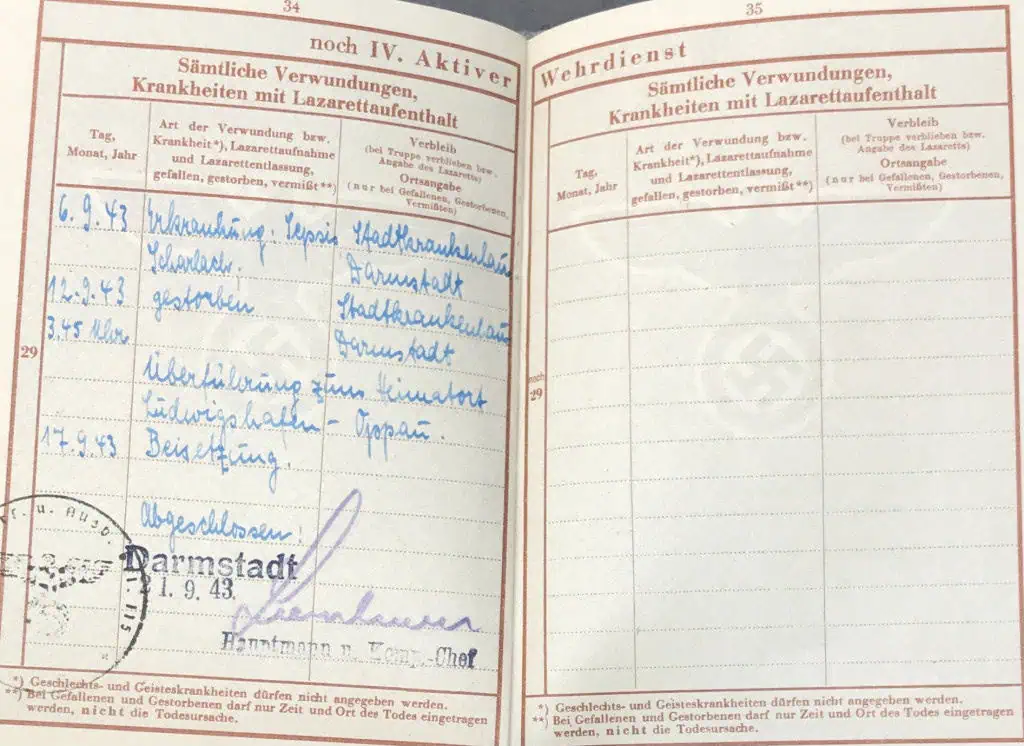 34
noch IV. Aktiver
Sämtliche Verwundungen,
Krankheiten mit Lazarettaufenthalt
Tag,
Monat, Jahr
Art der Verwundung bzw.
Krankheit*), Lazarettaufnahme
und Lazarettentlassung,
gefallen, gestorben, vermißt**)
Verbleib
(bei Truppe verblieben bzw.
Angabe des Lazaretts)
Ortsangabe
(nur bei Gefallenen, Gestorbenen,
Vermißten)
29
6.9.43 Erkrankung. Sepsis Stadtkrankenhaus
Scharlach. Darmstadt
12.9.43 gestorben Stadtkrankenhaus
3.45 Uhr Darmstadt
Überführung zum Heimatort
Ludwigshafen - Oppau.
17.9.43 Beisetzung.
Abgeschlossen!
Darmstadt
1. 9. 43.
Hauptmann u. Komp.-Chef
u. Ausb.
115
*) Geschlechts- und Geisteskrankheiten dürfen nicht angegeben werden.
**) Bei Gefallenen und Gestorbenen darf nur Zeit und Ort des Todes eingetragen
werden, nicht die Todesursache.
35
Wehrdienst
Sämtliche Verwundungen,
Krankheiten mit Lazarettaufenthalt
Tag,
Monat, Jahr
Art der Verwundung bzw.
Krankheit*), Lazarettaufnahme
und Lazarettentlassung,
gefallen, gestorben, vermißt**)
Verbleib
(bei Truppe verblieben bzw.
Angabe des Lazaretts)
Ortsangabe
(nur bei Gefallenen, Gestorbenen,
Vermißten)
noch
29
*) Geschlechts- und Geisteskrankheiten dürfen nicht angegeben werden.
**) Bei Gefallenen und Gestorbenen darf nur Zeit und Ort des Todes eingetragen
werden, nicht die Todesursache.